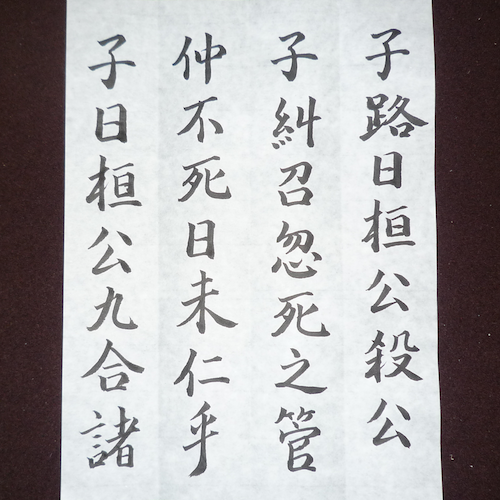 子路曰桓公殺公
子糾召忽死之管
仲不死曰未仁乎
子曰桓公九合諸